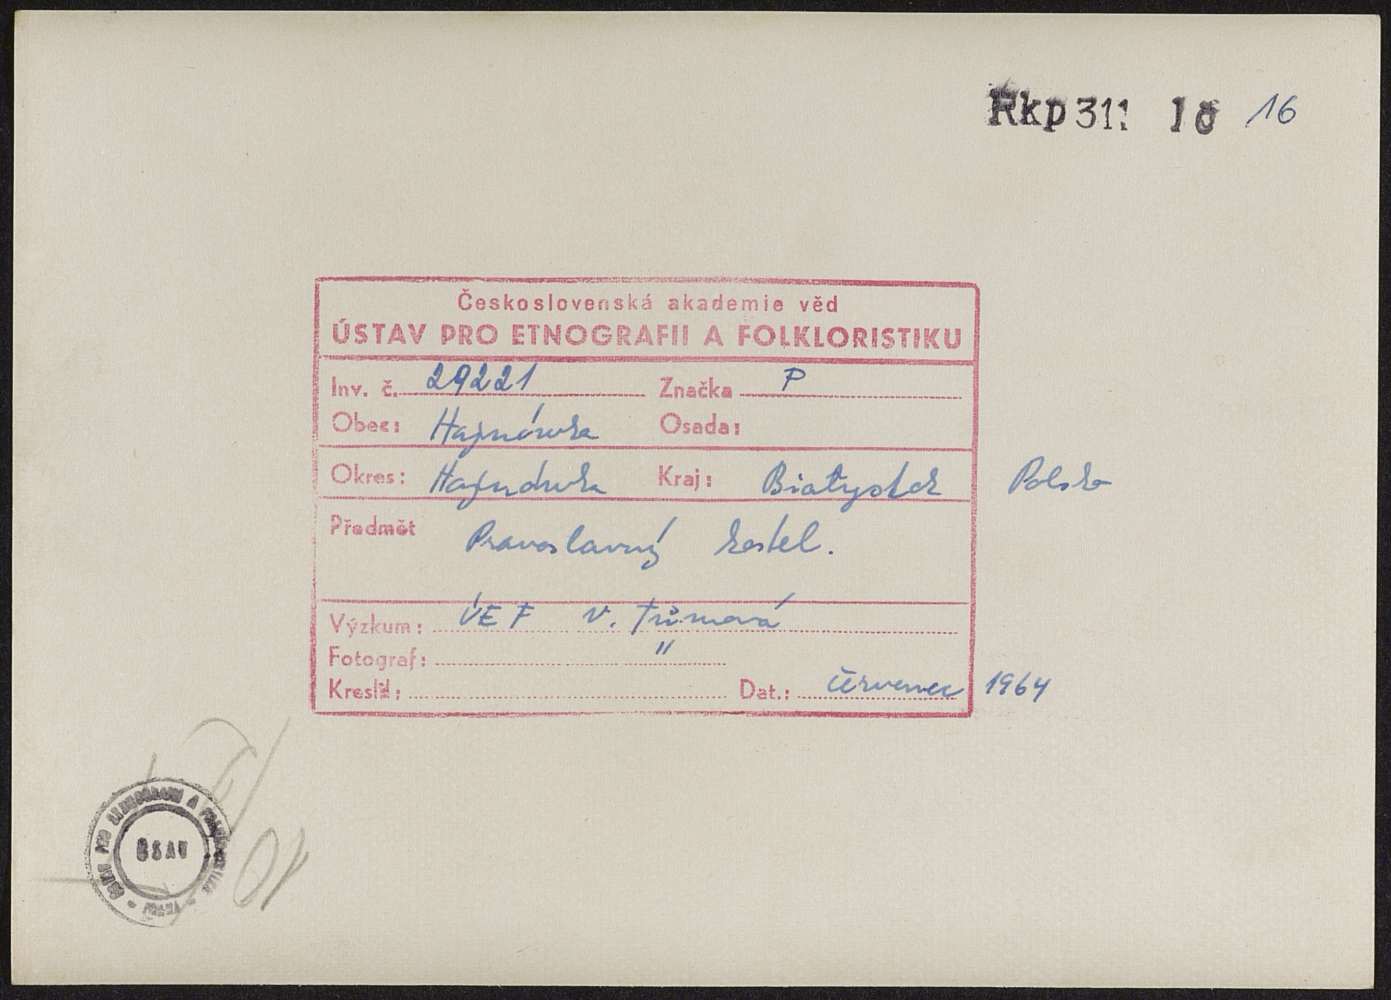 Rkp 311 16 16
Československá akademie věd
ÚSTAV PRO ETNOGRAFII A FOLKLORISTIKU
Inv. č. 29221 Značka P
Obec: Hajnówka Osada:
Okres: Hajnówka Kraj: Białystok Polsko
Předmět Pravoslavný kostel.
Výzkum: ÚEF V. Tůmová
Fotograf: "
Kreslil: Dat.: červenec 1964
ČSAV